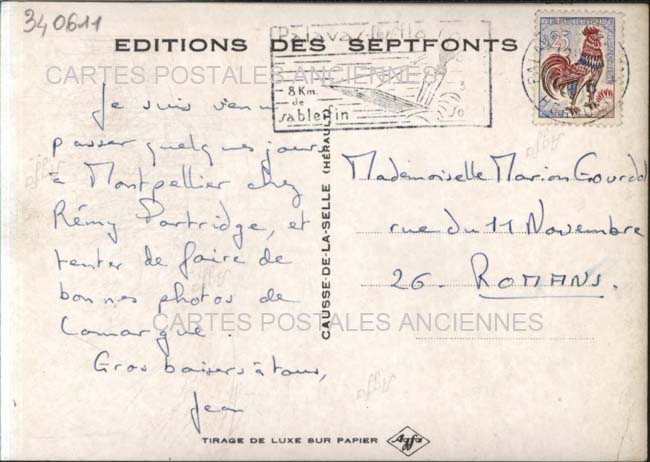 340611
EDITIONS DES SEPTFONTS
CARTES POSTALES ANCIENNES
Palavas-les-Flots
8 Km.
de
sable fin
0,25
Je suis venu
passer quelques jours
à Montpellier chez
Rémy Partridge, et
tenter de faire de
bonnes photos de
Camargue.
Gros baisers à tous,
Jean
CAUSSE-DE-LA-SELLE (HÉRAULT)
Mademoiselle Marion Gourdol
rue du 11 Novembre
26. ROMANS.
CARTES POSTALES ANCIENNES
TIRAGE DE LUXE SUR PAPIER Agfa